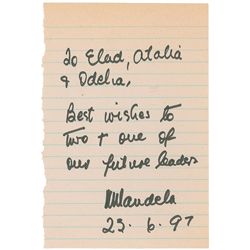 To Elad, Atalia
& Odelia,
Best wishes to
two + one of
our future leaders
NMandela
23. 6. 97